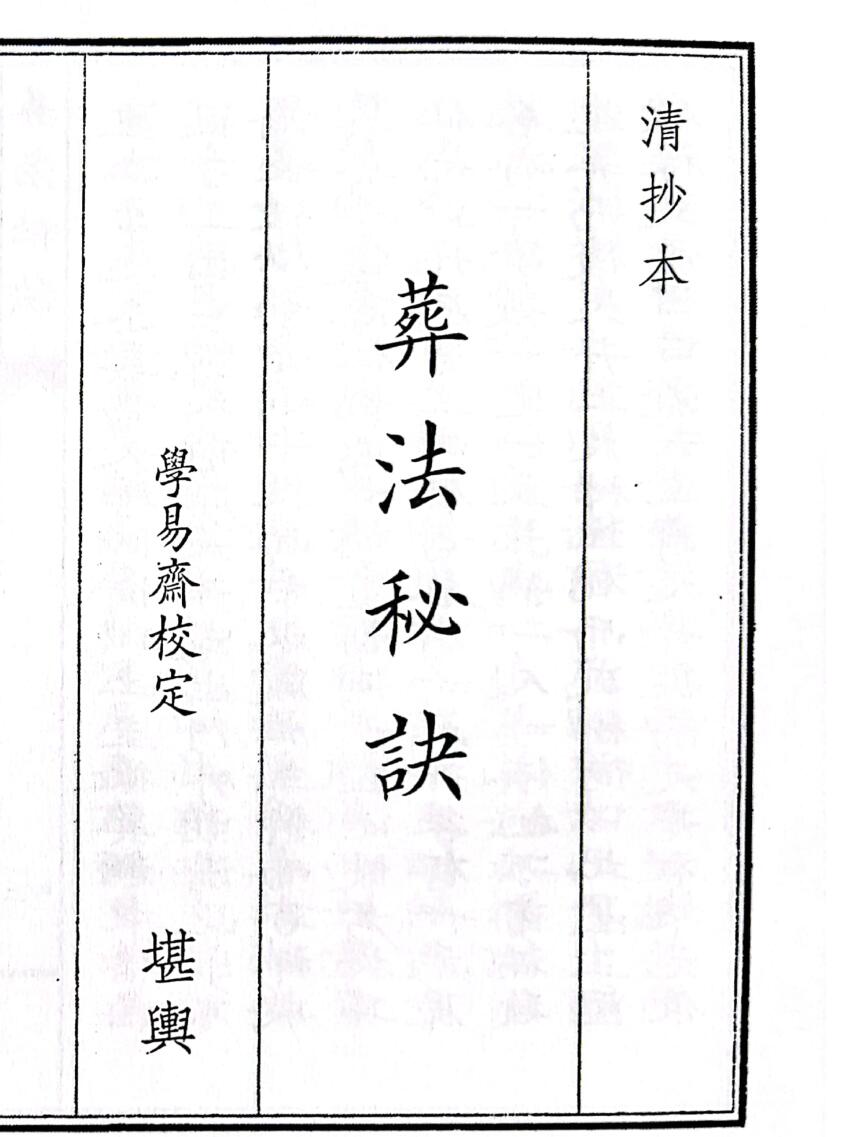 清抄本
葬法秘訣
學易齋校定
堪輿